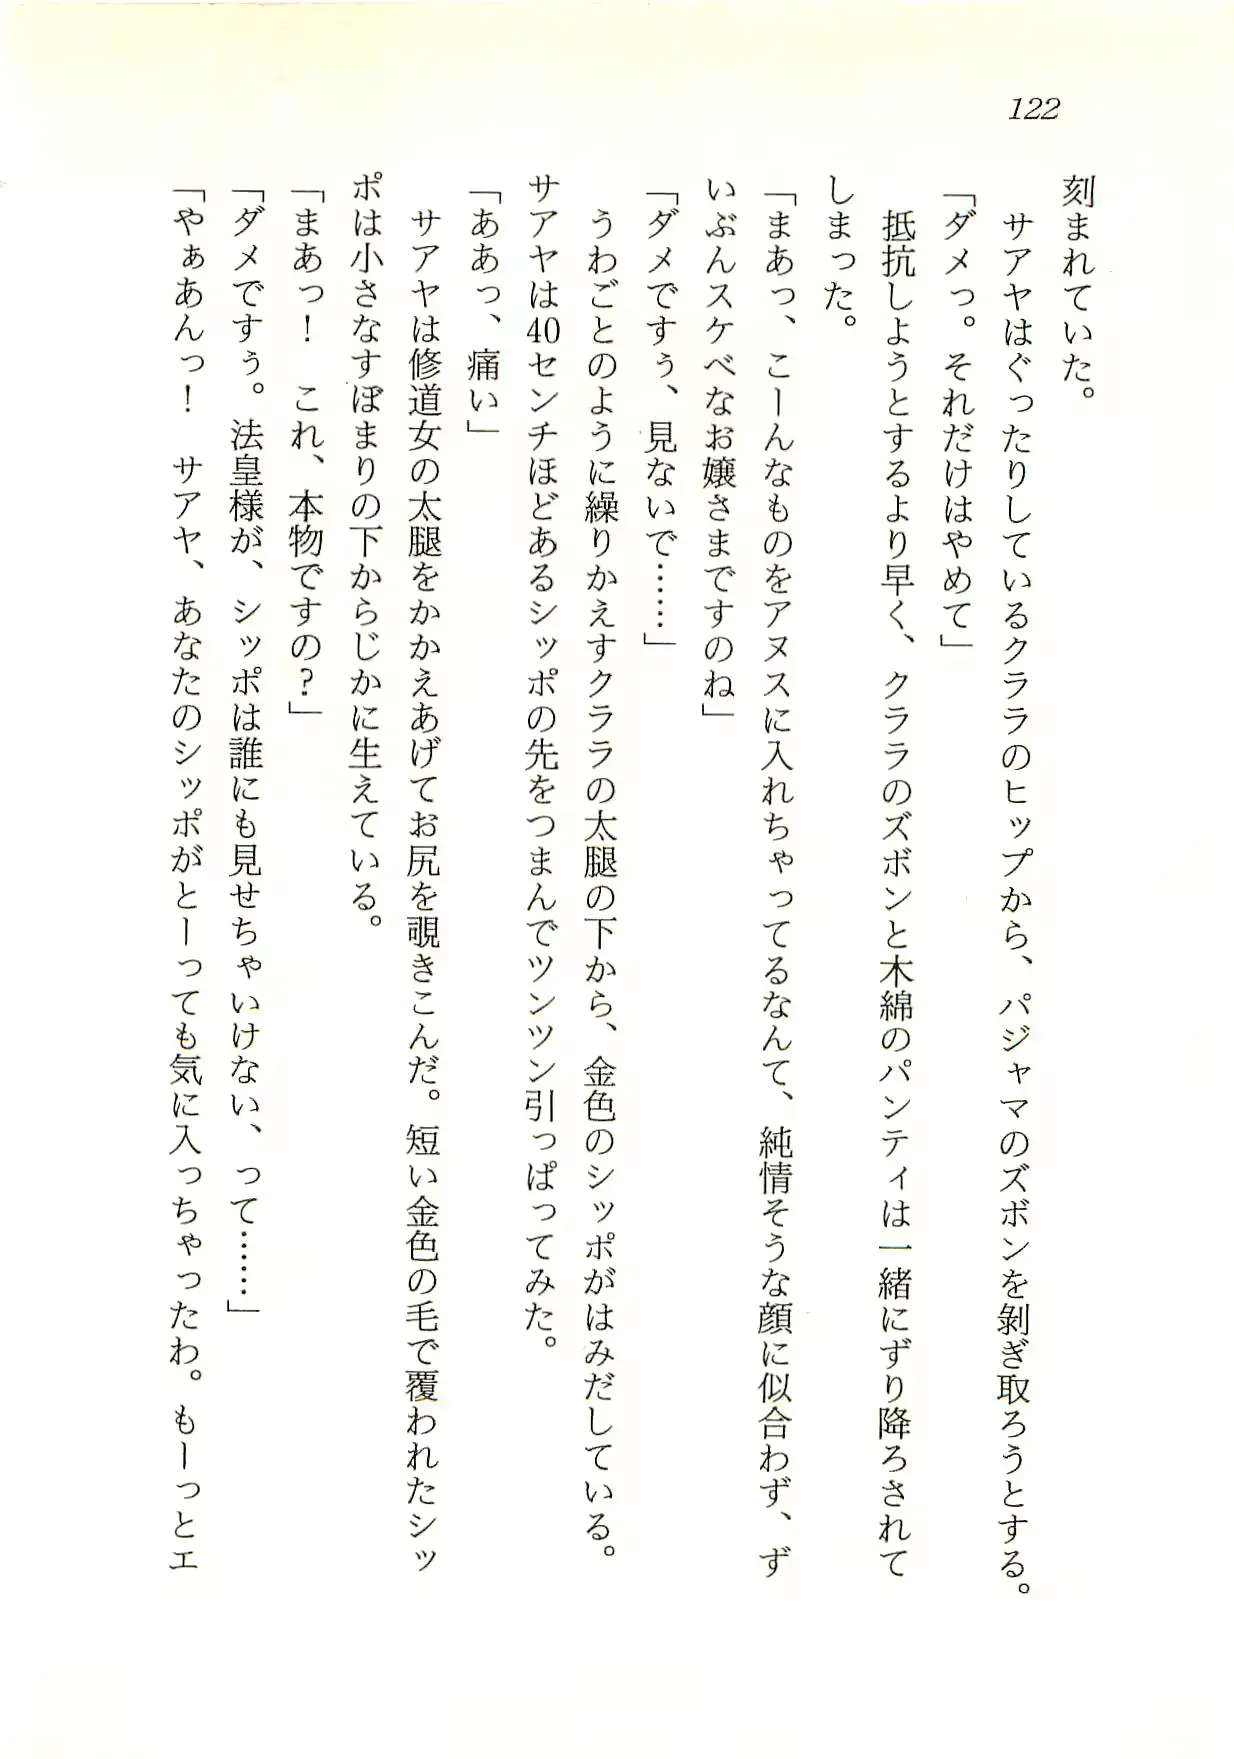 122
刻まれていた。
サアヤはぐったりしているクララのヒップから、パジャマのズボンを剝ぎ取ろうとする。
「ダメっ。それだけはやめて」
抵抗しようとするより早く、クララのズボンと木綿のパンティは一緒にずり降ろされて
しまった。
「まあっ、こーんなものをアヌスに入れちゃってるなんて、純情そうな顔に似合わず、ず
いぶんスケベなお嬢さまですのね」
「ダメですぅ、見ないで……」
うわごとのように繰りかえすクララの太腿の下から、金色のシッポがはみだしている。
サアヤは40センチほどあるシッポの先をつまんでツンツン引っぱってみた。
「ああっ、痛い」
サアヤは修道女の太腿をかかえあげてお尻を覗きこんだ。短い金色の毛で覆われたシッ
ポは小さなすぼまりの下からじかに生えている。
「まあっ！　これ、本物ですの？」
「ダメですぅ。法皇様が、シッポは誰にも見せちゃいけない、って……」
「やぁあんっ！　サアヤ、あなたのシッポがとーっても気に入っちゃったわ。もーっとエ